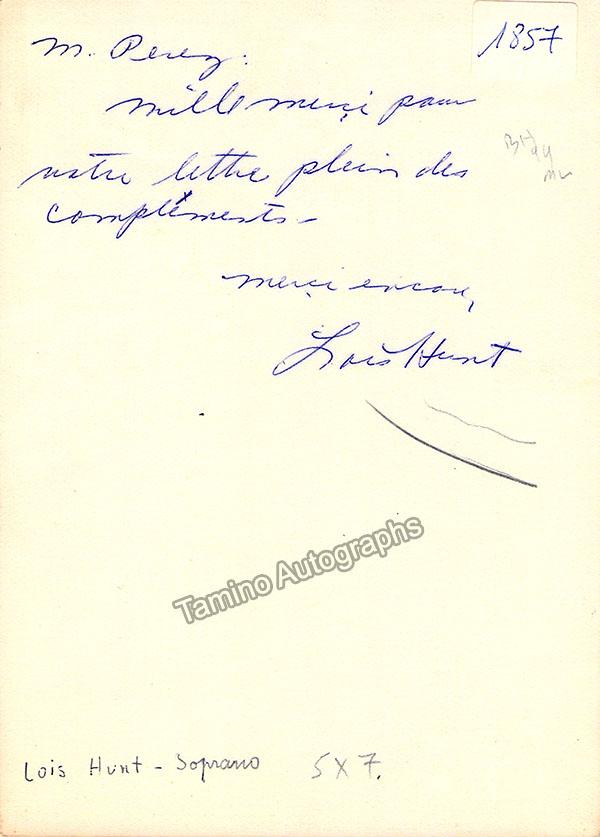 1857
M. Perez:
mille merçi pour
votre lettre plein des
compléments –
merçi encore,
Lois Hunt
Tamino Autographs
Lois Hunt - Soprano
5 X 7.